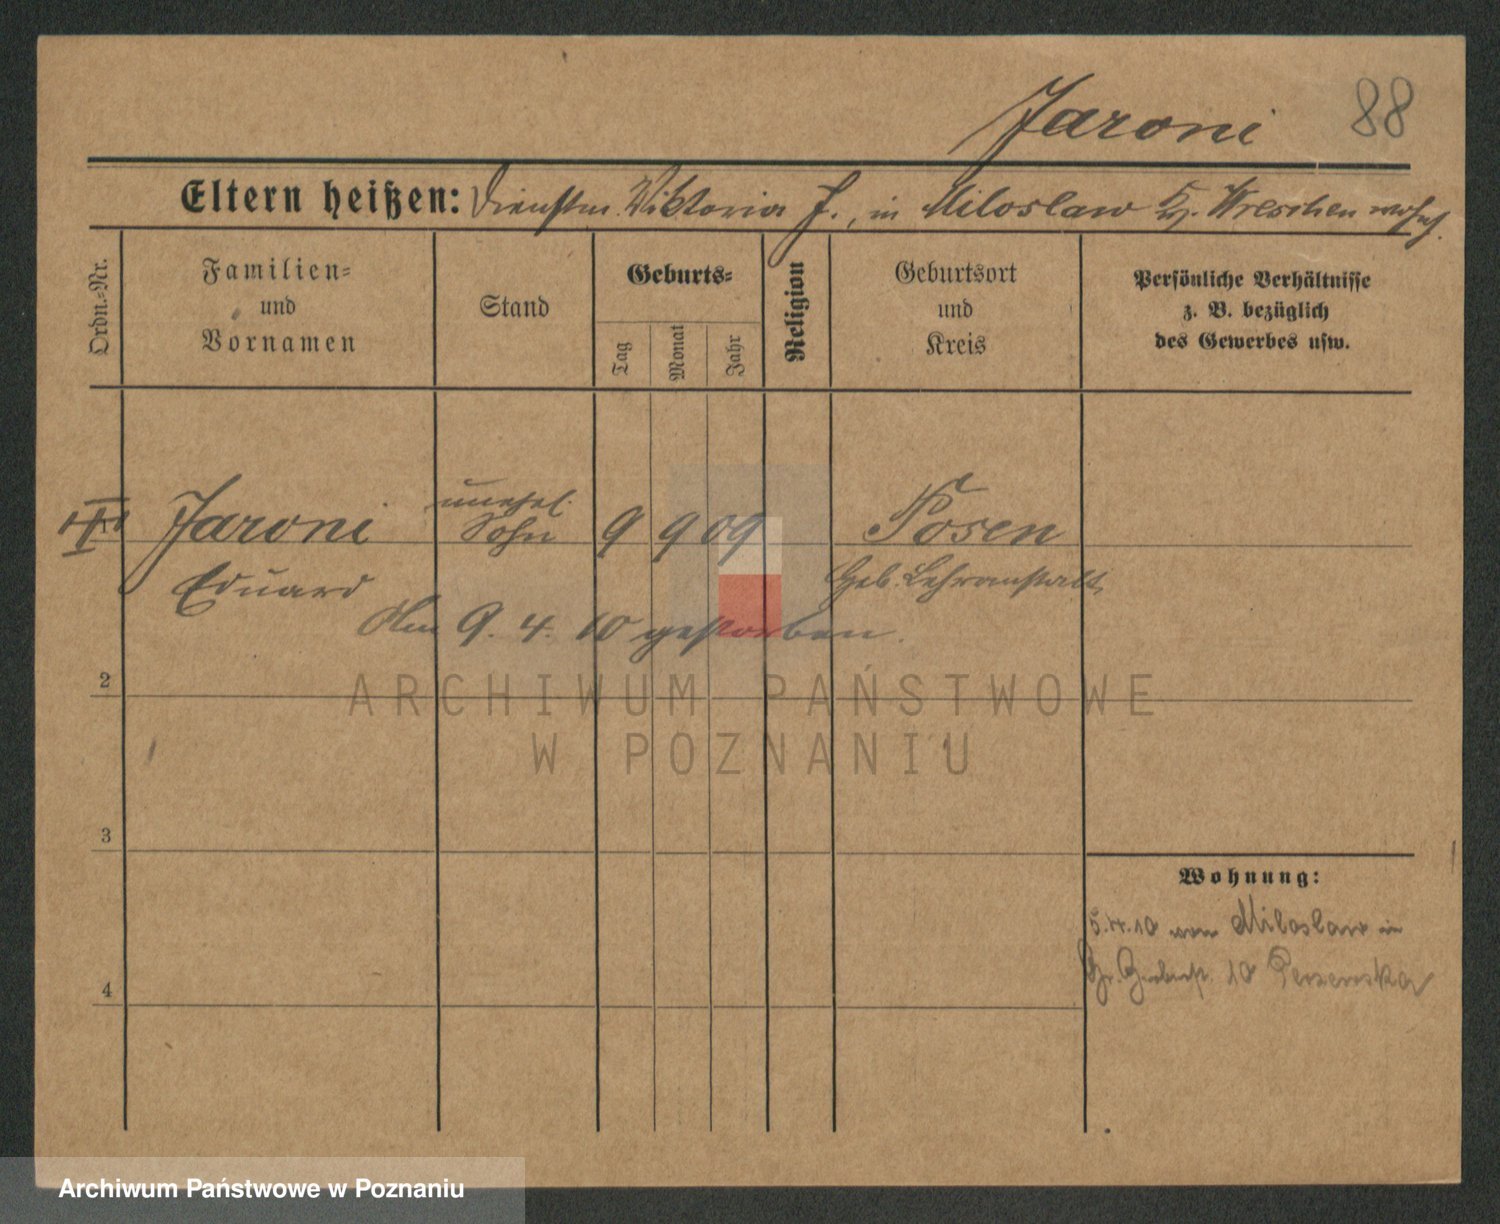 Jaroni 88
Eltern heißen: Dienstm. Viktoria J., in Miloslaw Kr. Wreschen wohnh.
Ordn.-Nr.
Familien-
und
Vornamen
Stand
Geburts-
Tag
Monat
Jahr
Religion
Geburtsort
und
Kreis
Persönliche Verhältnisse
z. B. bezüglich
des Gewerbes usw.
unehel.
1 Jaroni Sohn 9 9 09 Posen
Eduard Geb. Lehranstalt
Am 9. 4. 10 gestorben.
2
ARCHIWUM PAŃSTWOWE
W POZNANIU
3
Wohnung:
5.4.10 von Miloslaw in
Gr. 10
4
Archiwum Państwowe w Poznaniu